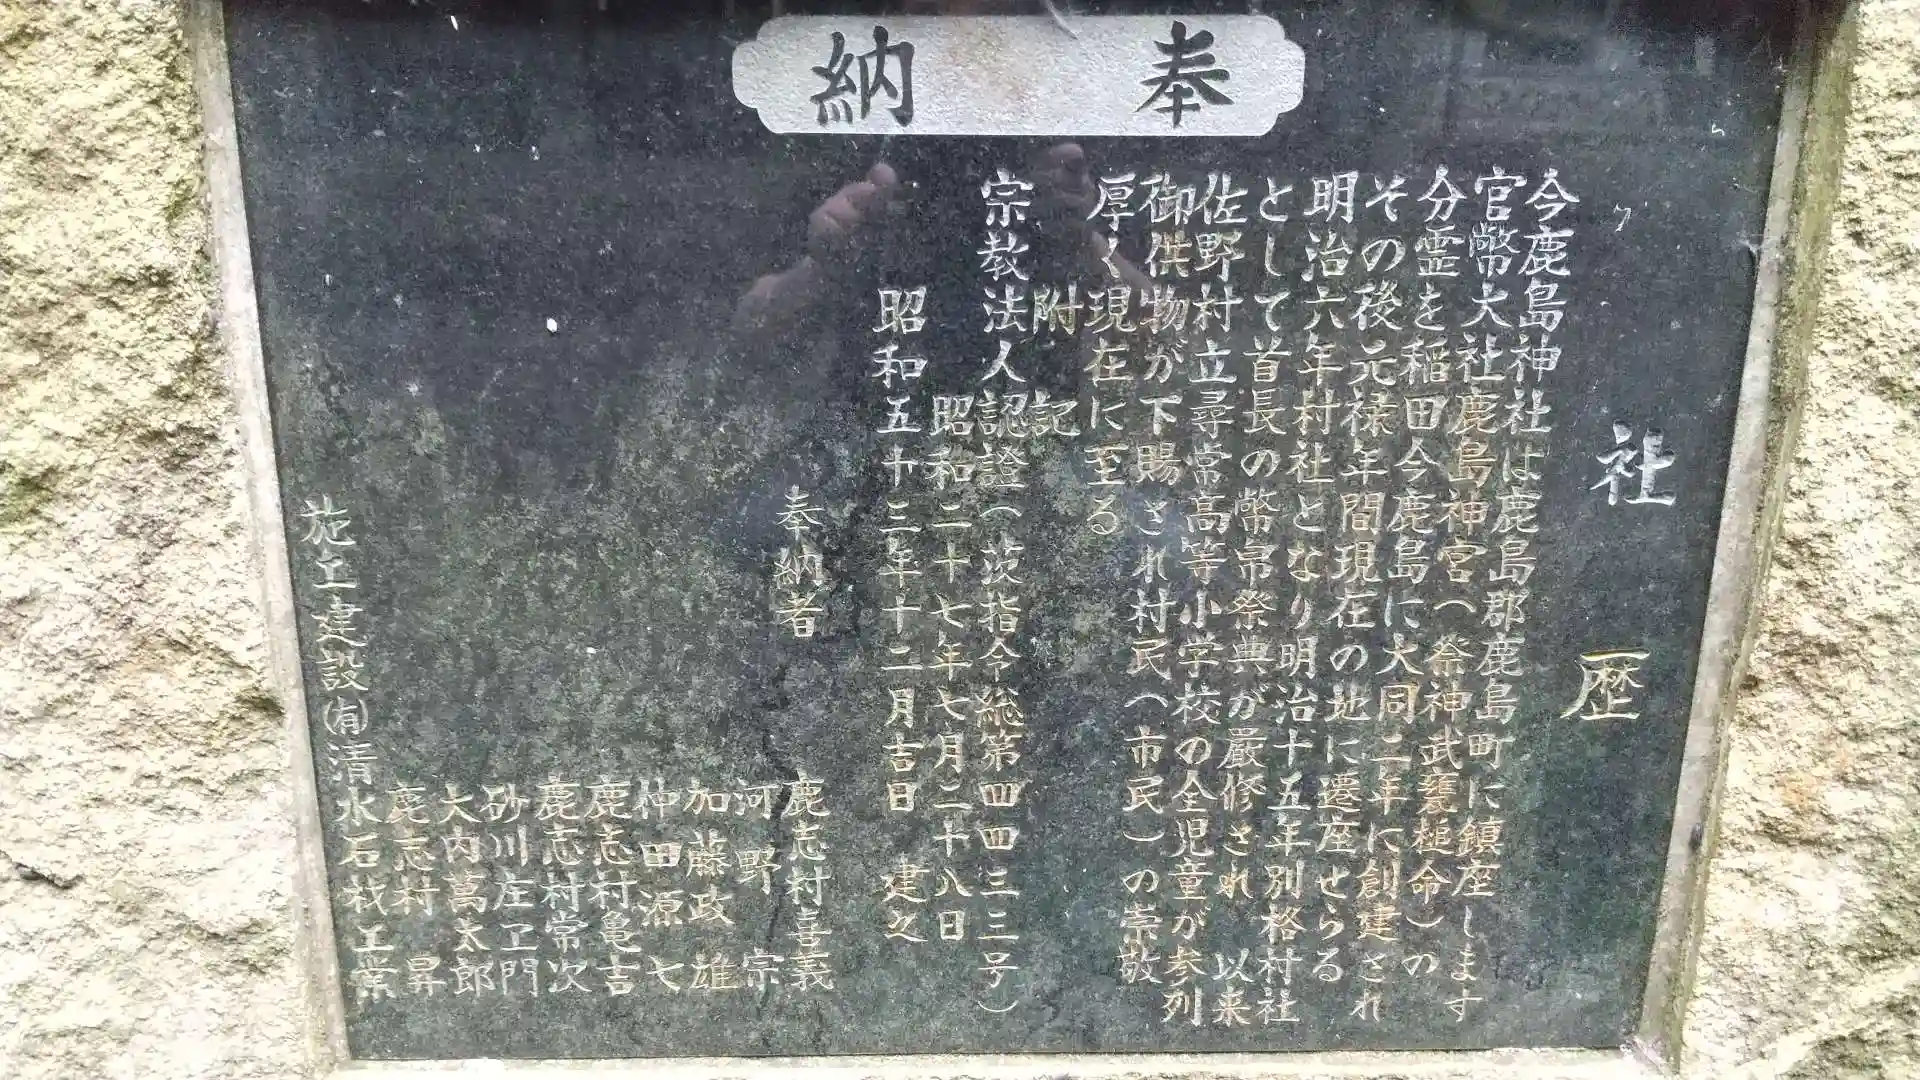 奉納
社歴
今鹿島神社は鹿島郡鹿島町に鎮座します
官幣大社鹿島神宮（祭神武甕槌命）の
分霊を稲田今鹿島に大同二年に創建され
その後元禄年間現在の地に遷座せらる
明治六年村社となり明治十五年別格村社
として首長の幣帛祭典が厳修され 以来
佐野村立尋常高等小学校の全児童が参列
御供物が下賜され村民（市民）の崇敬
厚く現在に至る
附記
宗教法人認證（茨指令総第四四三三号）
昭和二十七年七月二十八日
昭和五十三年十二月吉日 建之
奉納者
鹿志村喜義
河野宗
加藤政雄
仲田源七
鹿志村亀吉
鹿志村常次
砂川庄ヱ門
大内萬太郎
鹿志村昇
施工建設㈲清水石材工業